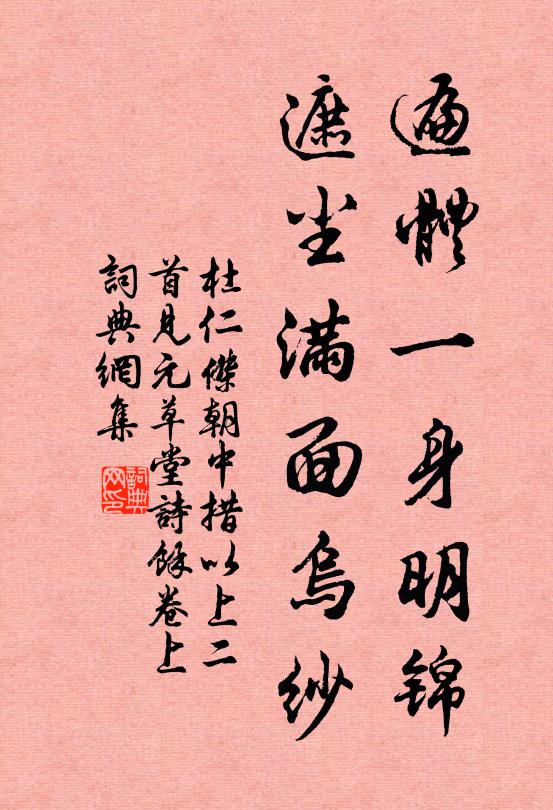 遍體一身明錦
遮塵滿面烏紗
杜仁傑朝中措以上二
首見元草堂詩餘卷上
詞典網集
詞典網印